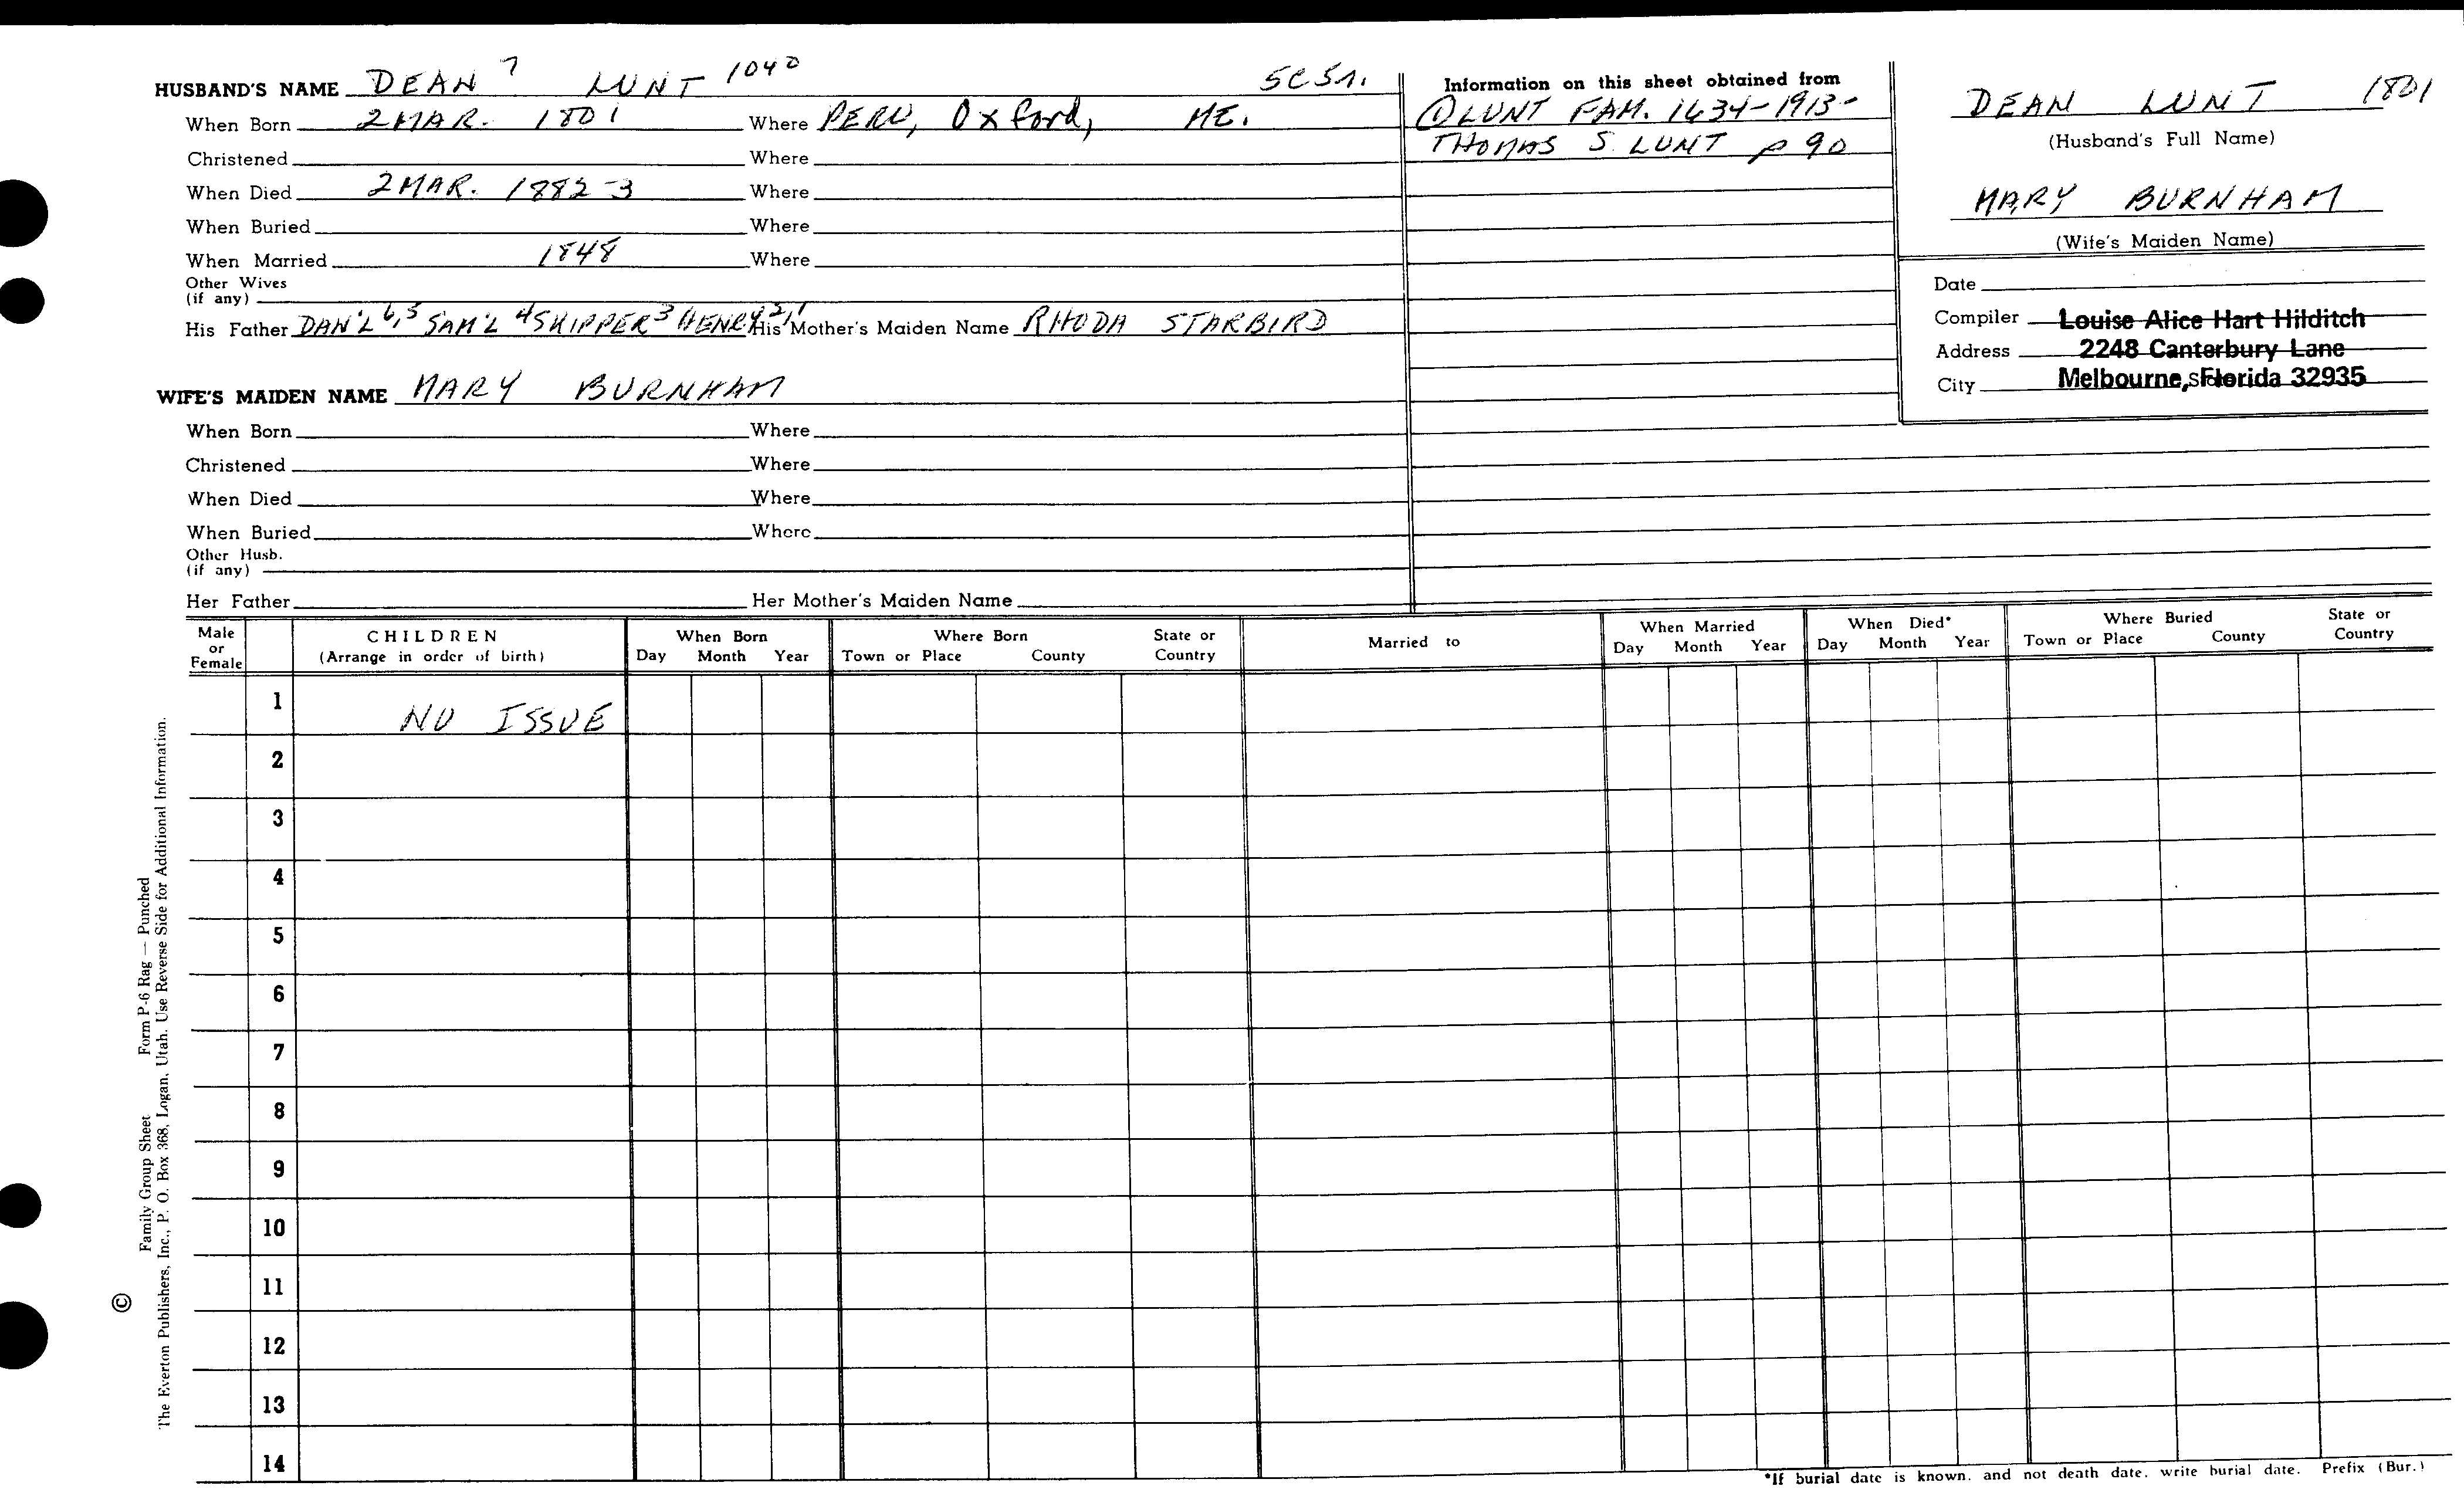 HUSBAND'S NAME DEAN 7 LUNT 1040
When Born 2 MAR. 1801 Where PERU, Oxford, ME.
Christened Where
When Died 2 MAR. 1882-3 Where
When Buried Where
When Married 1848 Where
Other Wives
(if any)
His Father DAN'L 6,5 SAM'L 4 SKIPPER 3 HENRY 2,1 His Mother's Maiden Name RHODA STARBIRD
WIFE'S MAIDEN NAME MARY BURNHAM
When Born Where
Christened Where
When Died Where
When Buried Where
Other Husb.
(if any)
Her Father Her Mother's Maiden Name
Information on this sheet obtained from
① LUNT FAM. 1634-1913-
THOMAS S. LUNT p 90
DEAN LUNT 1801
(Husband's Full Name)
MARY BURNHAM
(Wife's Maiden Name)
Date
Compiler Louise Alice Hart Hilditch
Address 2248 Canterbury Lane
City Melbourne, Florida 32935
Male or Female
CHILDREN
(Arrange in order of birth)
When Born
Day Month Year
Where Born
Town or Place County State or Country
Married to
When Married
Day Month Year
When Died*
Day Month Year
Where Buried
Town or Place County State or Country
1 NO ISSUE
2
3
4
5
6
7
8
9
10
11
12
13
14
*If burial date is known, and not death date, write burial date. Prefix (Bur.)
© Family Group Sheet Form P-6 Rag — Punched
The Everton Publishers, Inc., P. O. Box 368, Logan, Utah. Use Reverse Side for Additional Information.